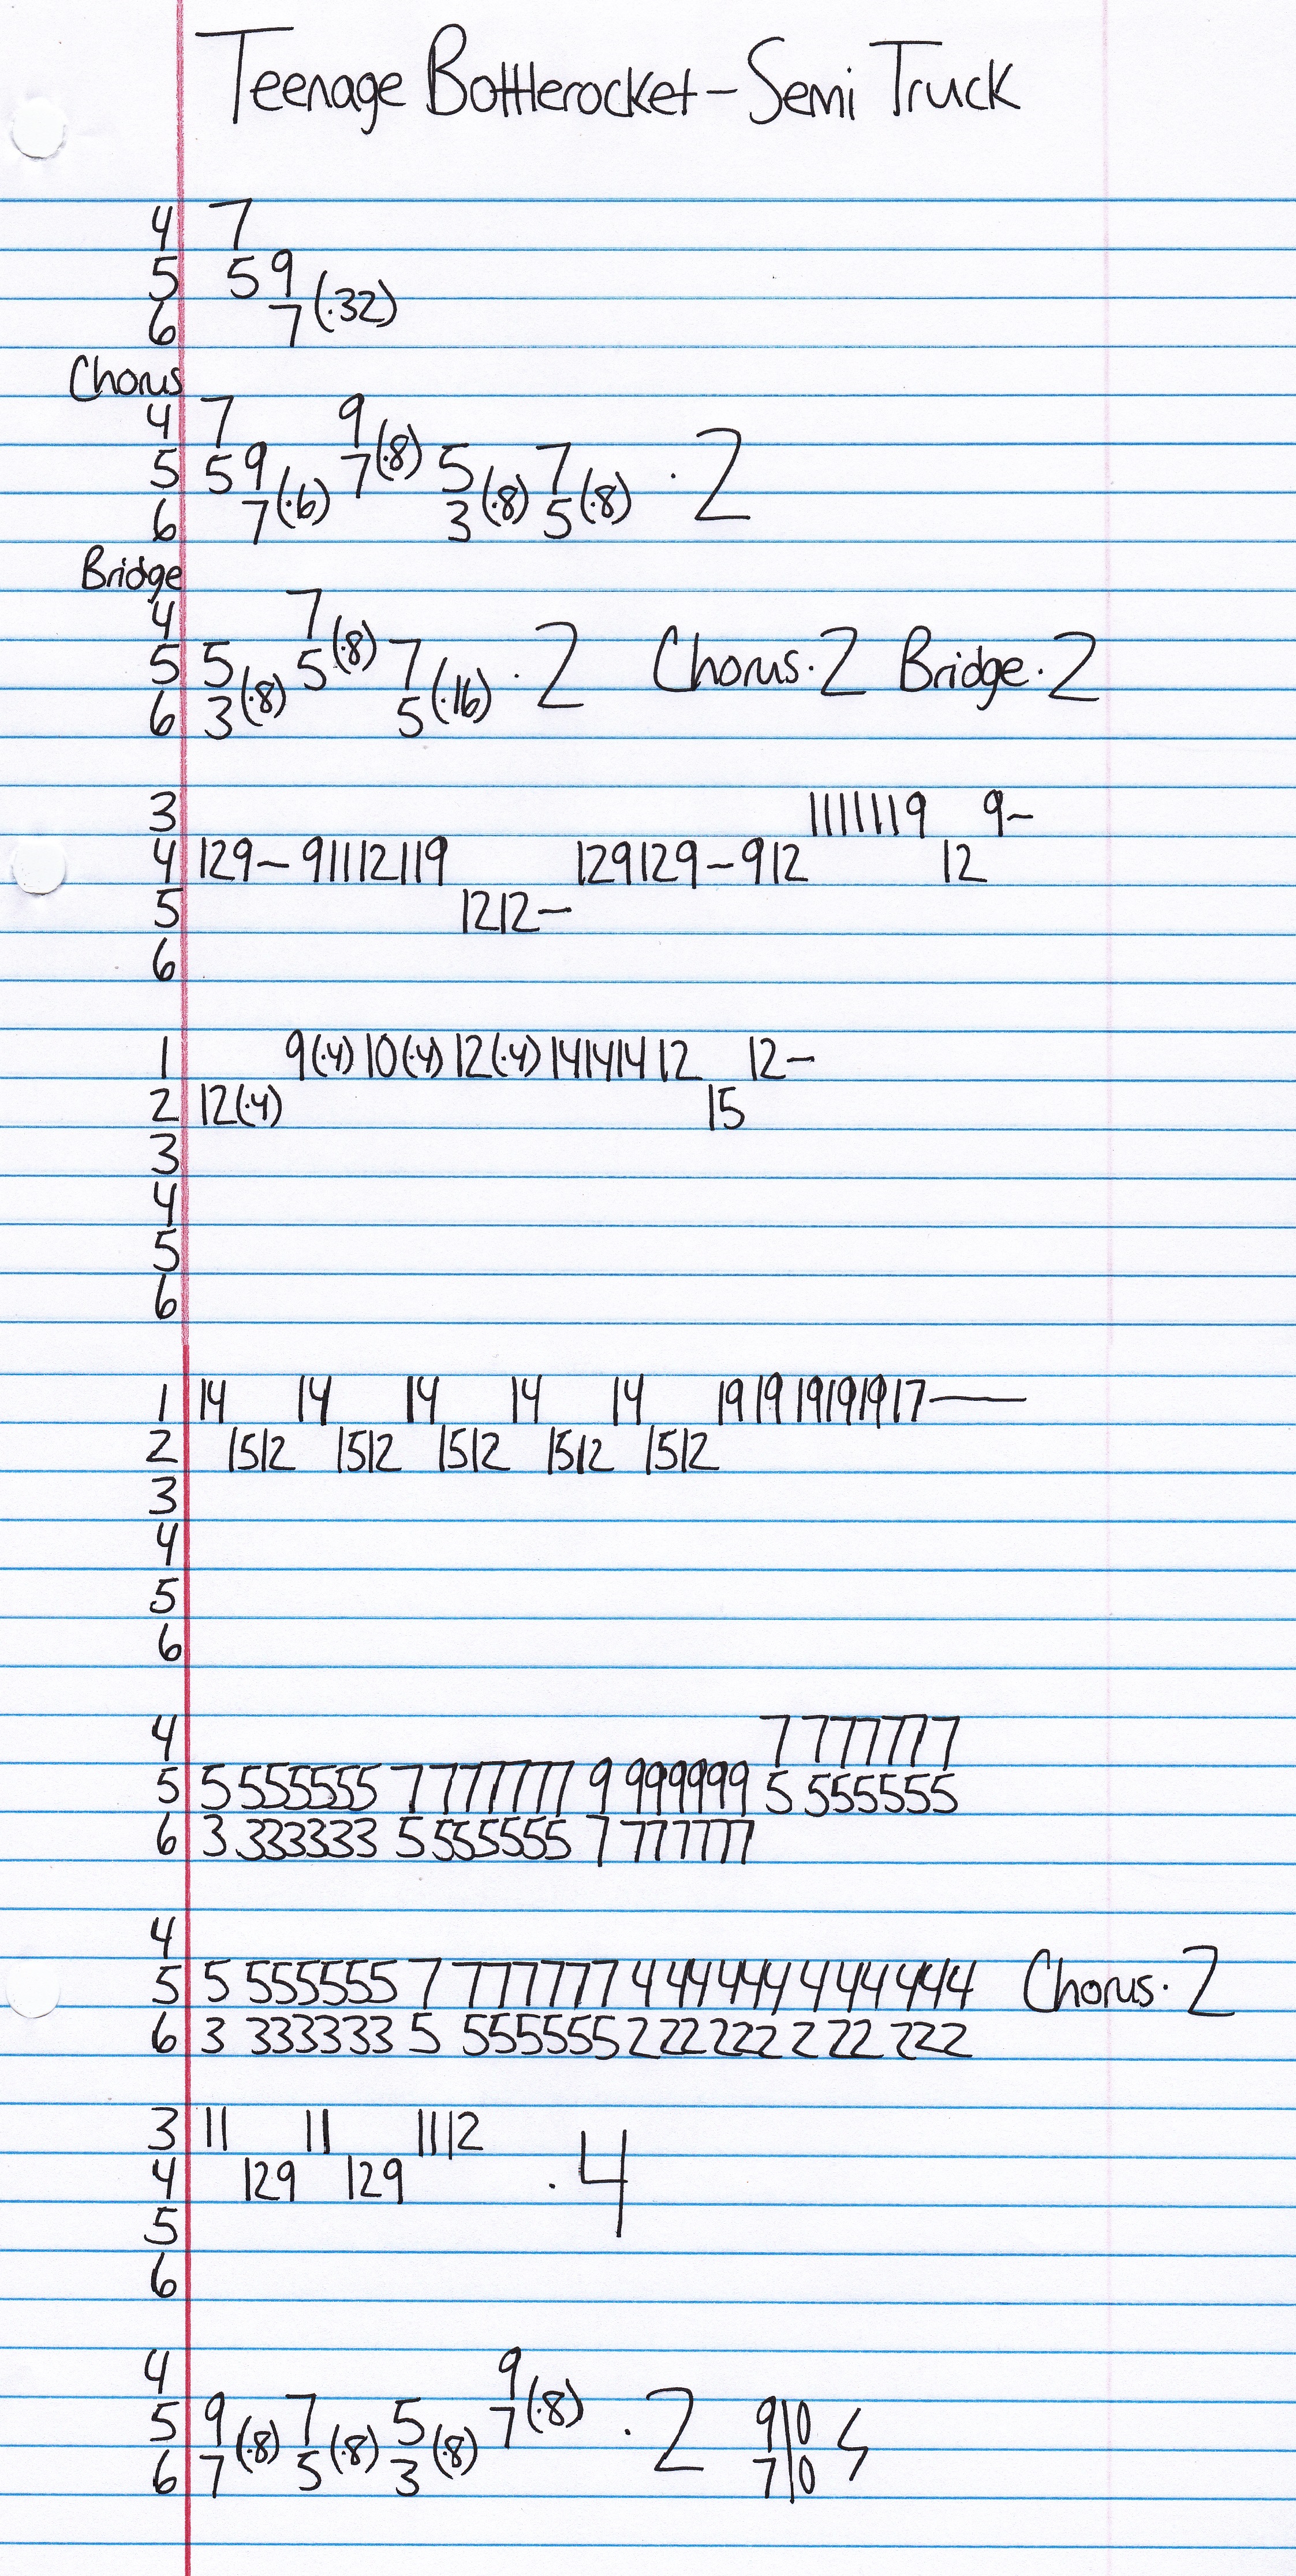 Teenage Bottlerocket - Semi Truck
4 7
5 5 9
6 7 (·32)
Chorus
4 7 9
5 5 9 7 (·8) 5 7 · 2
6 7 (·6) 3 (·8) 5 (·8)
Bridge
4 7
5 5 5 (·8) 7 · 2 Chorus · 2 Bridge · 2
6 3 (·8) 5 (·16)
3 11 11 11 9 9-
4 12 9 - 9 11 12 11 9 12 9 12 9 - 9 12 12
5 12 12 -
6
1 9 (·4) 10 (·4) 12 (·4) 14 14 14 12 12 -
2 12 (·4) 15
3
4
5
6
1 14 14 14 14 14 19 19 19 19 19 17 —
2 15 12 15 12 15 12 15 12 15 12
3
4
5
6
4 7 777777
5 5 555555 7 777777 9 999999 5 555555
6 3 333333 5 555555 7 777777
4
5 5 555555 7 777777 4 44 444 4 44 444 Chorus · 2
6 3 333333 5 555555 2 22 222 2 22 222
3 11 11 11 12
4 12 9 12 9 · 4
5
6
4 9
5 9 7 5 7 (·8) · 2 9 | 0
6 7 (·8) 5 (·8) 3 (·8) 7 | 0